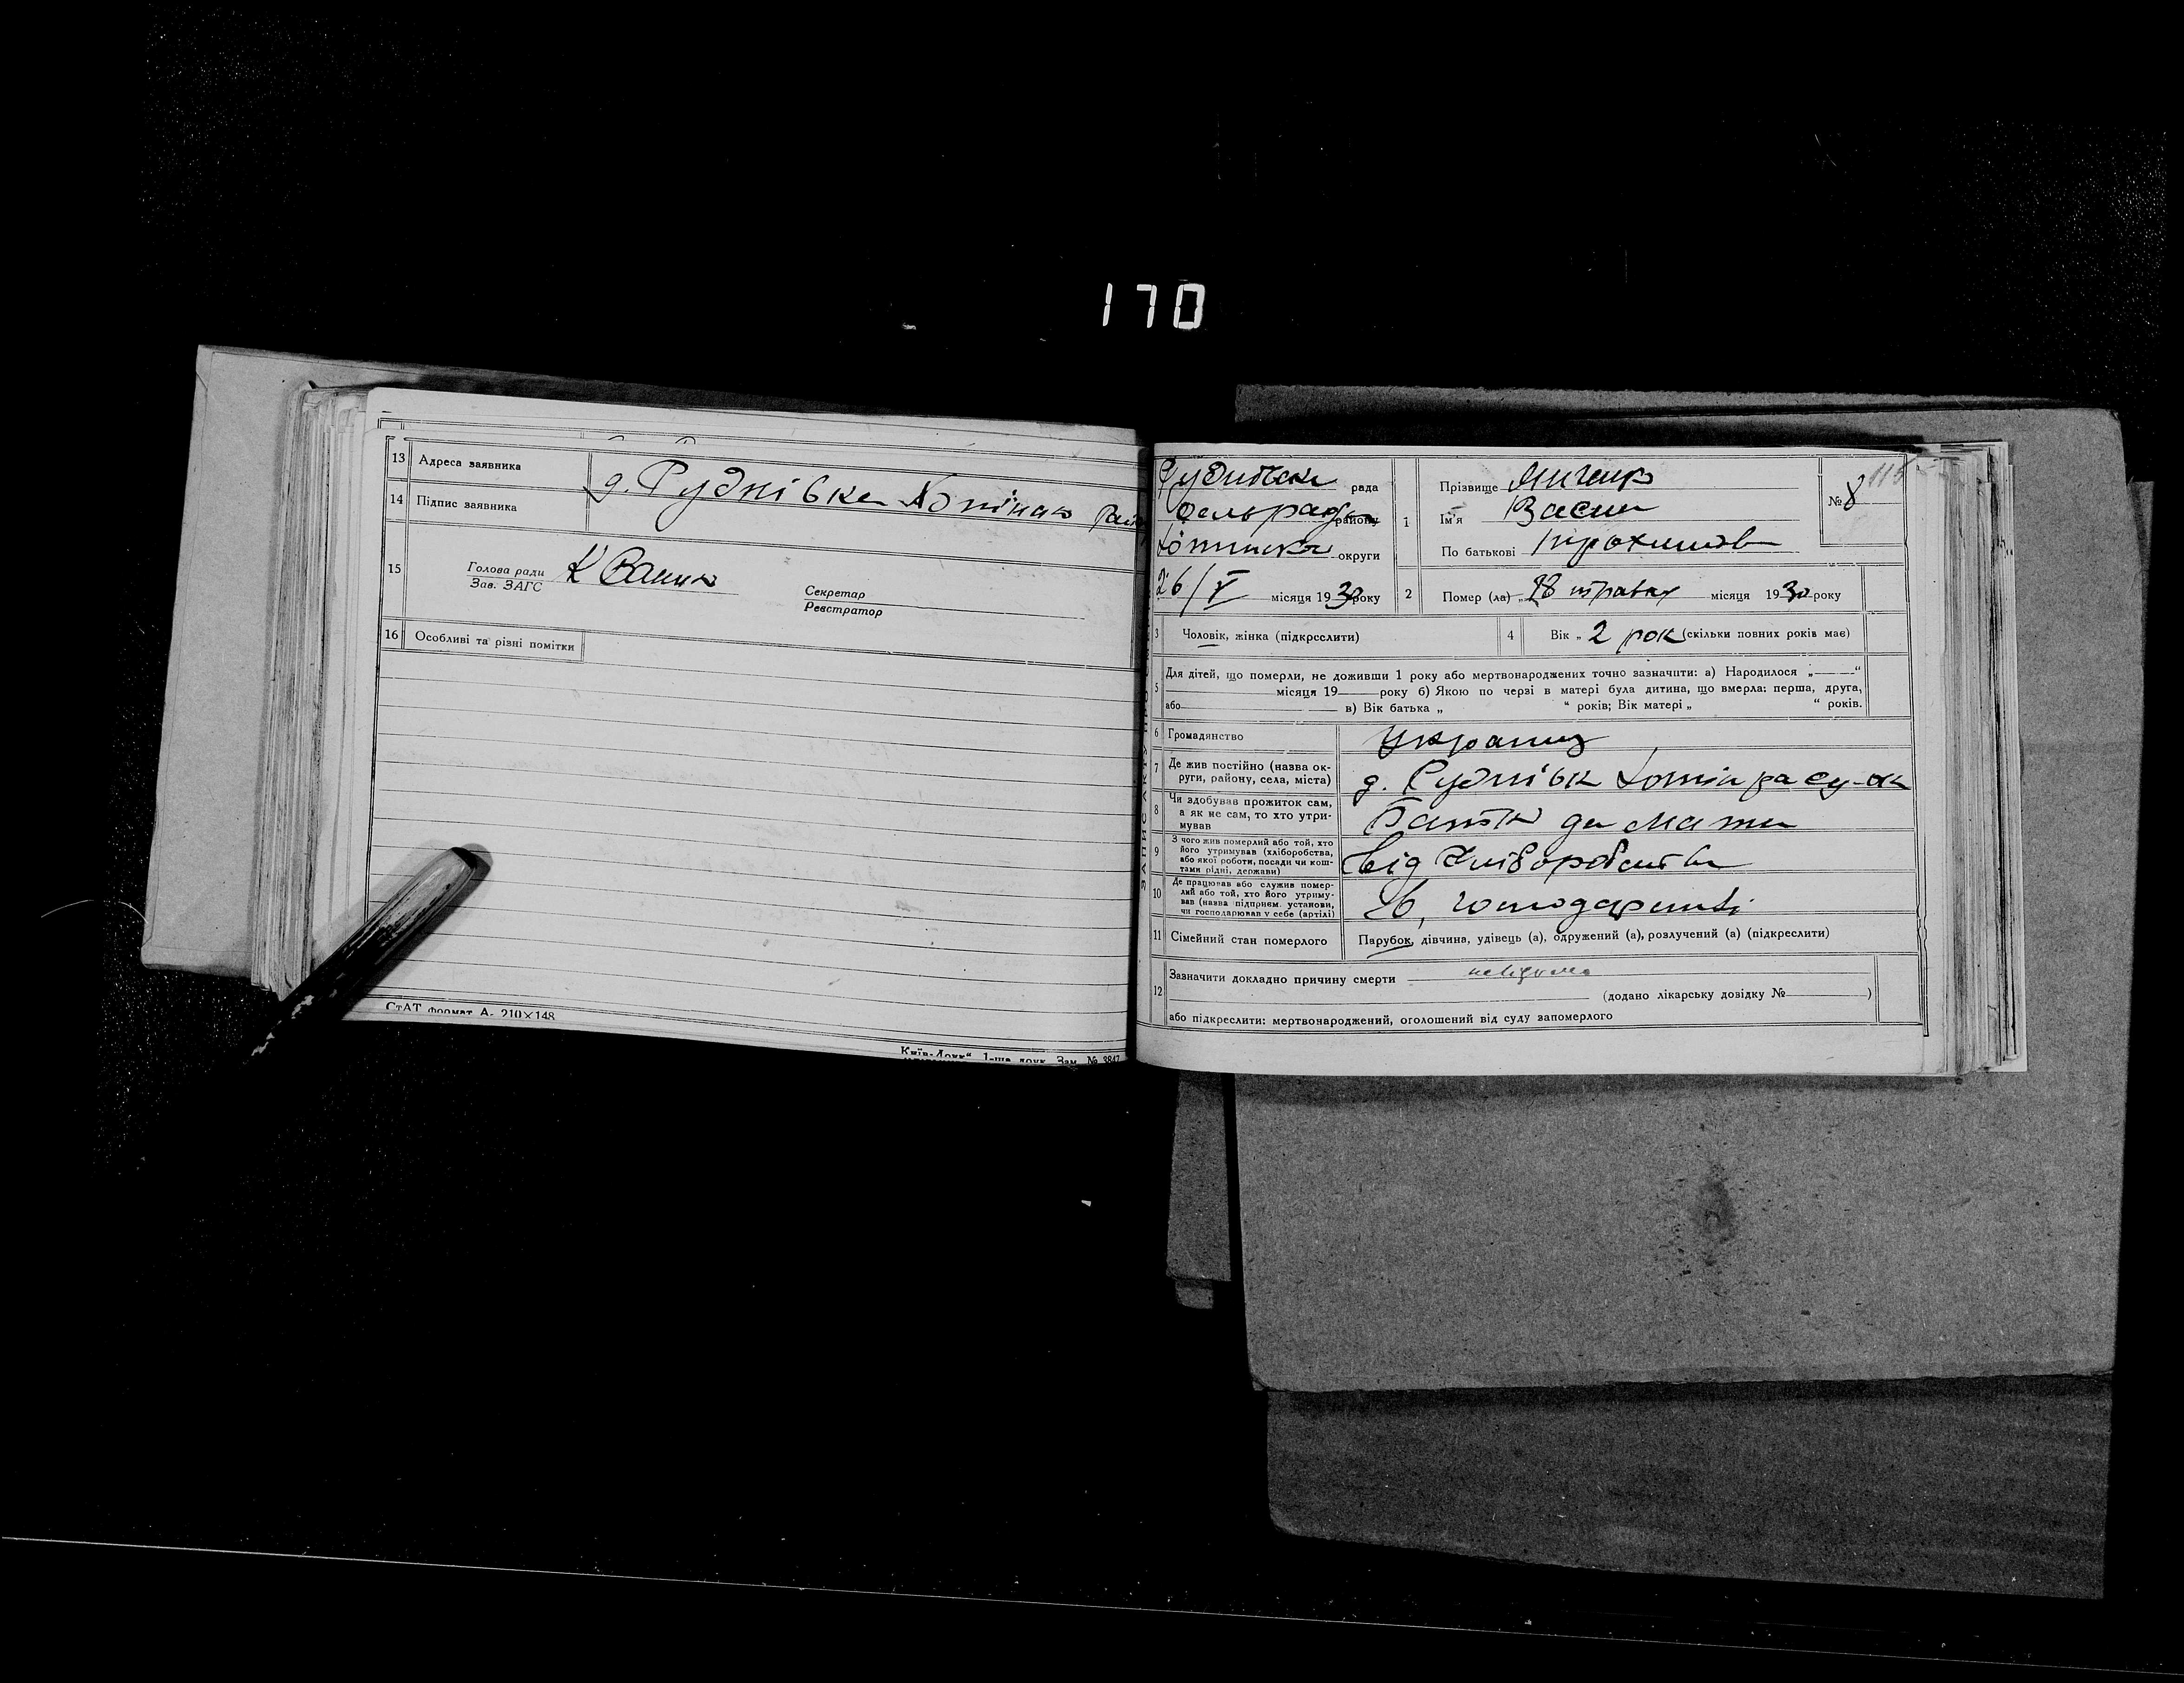 170
13 Адреса заявника
д. Руднівка Хотінко рай
14 Підпис заявника
15 Голова ради
Зав. ЗАГС
Секретар
Реєстратор
16 Особливі та різні помітки
СтАТ формат А- 210×148
Київ-Друк" 1-ша друк. Зам. № 3847
рада
сельрады району
округи
26/V місяця 1930 року
1 Прізвище
Ім'я Васил
По батькові Трохимов
№ 8
115
2 Помер (ла) „18 травня місяця 1930 року
3 Чоловік, жінка (підкреслити)
4 Вік „ 2 рок (скільки повних років має)
5 Для дітей, що померли, не доживши 1 року або мертвонароджених точно зазначити: а) Народилося „ “
місяця 19 року б) Якою по черзі в матері була дитина, що вмерла: перша, друга,
або в) Вік батька „ “ років; Вік матері „ “ років.
6 Громадянство
Украинц
7 Де жив постійно (назва ок-
руги, району, села, міста)
д. Руднівк Хотін ра Су-ок
8 Чи здобував прожиток сам,
а як не сам, то хто утри-
мував
Батьк да мати
9 З чого жив померлий або той, хто
його утримував (хліборобства,
або якої роботи, посади чи кош-
тами рідні, держави)
від Хліборобства
10 Де працював або служив помер-
лий або той, хто його утриму-
вав (назва підприєм. установи,
чи господарював у себе (артілі)
господарстві
11 Сімейний стан померлого
Парубок, дівчина, удівець (а), одружений (а), розлучений (а) (підкреслити)
12 Зазначити докладно причину смерти невідома
(додано лікарську довідку № )
або підкреслити: мертвонароджений, оголошений від суду запомерлого